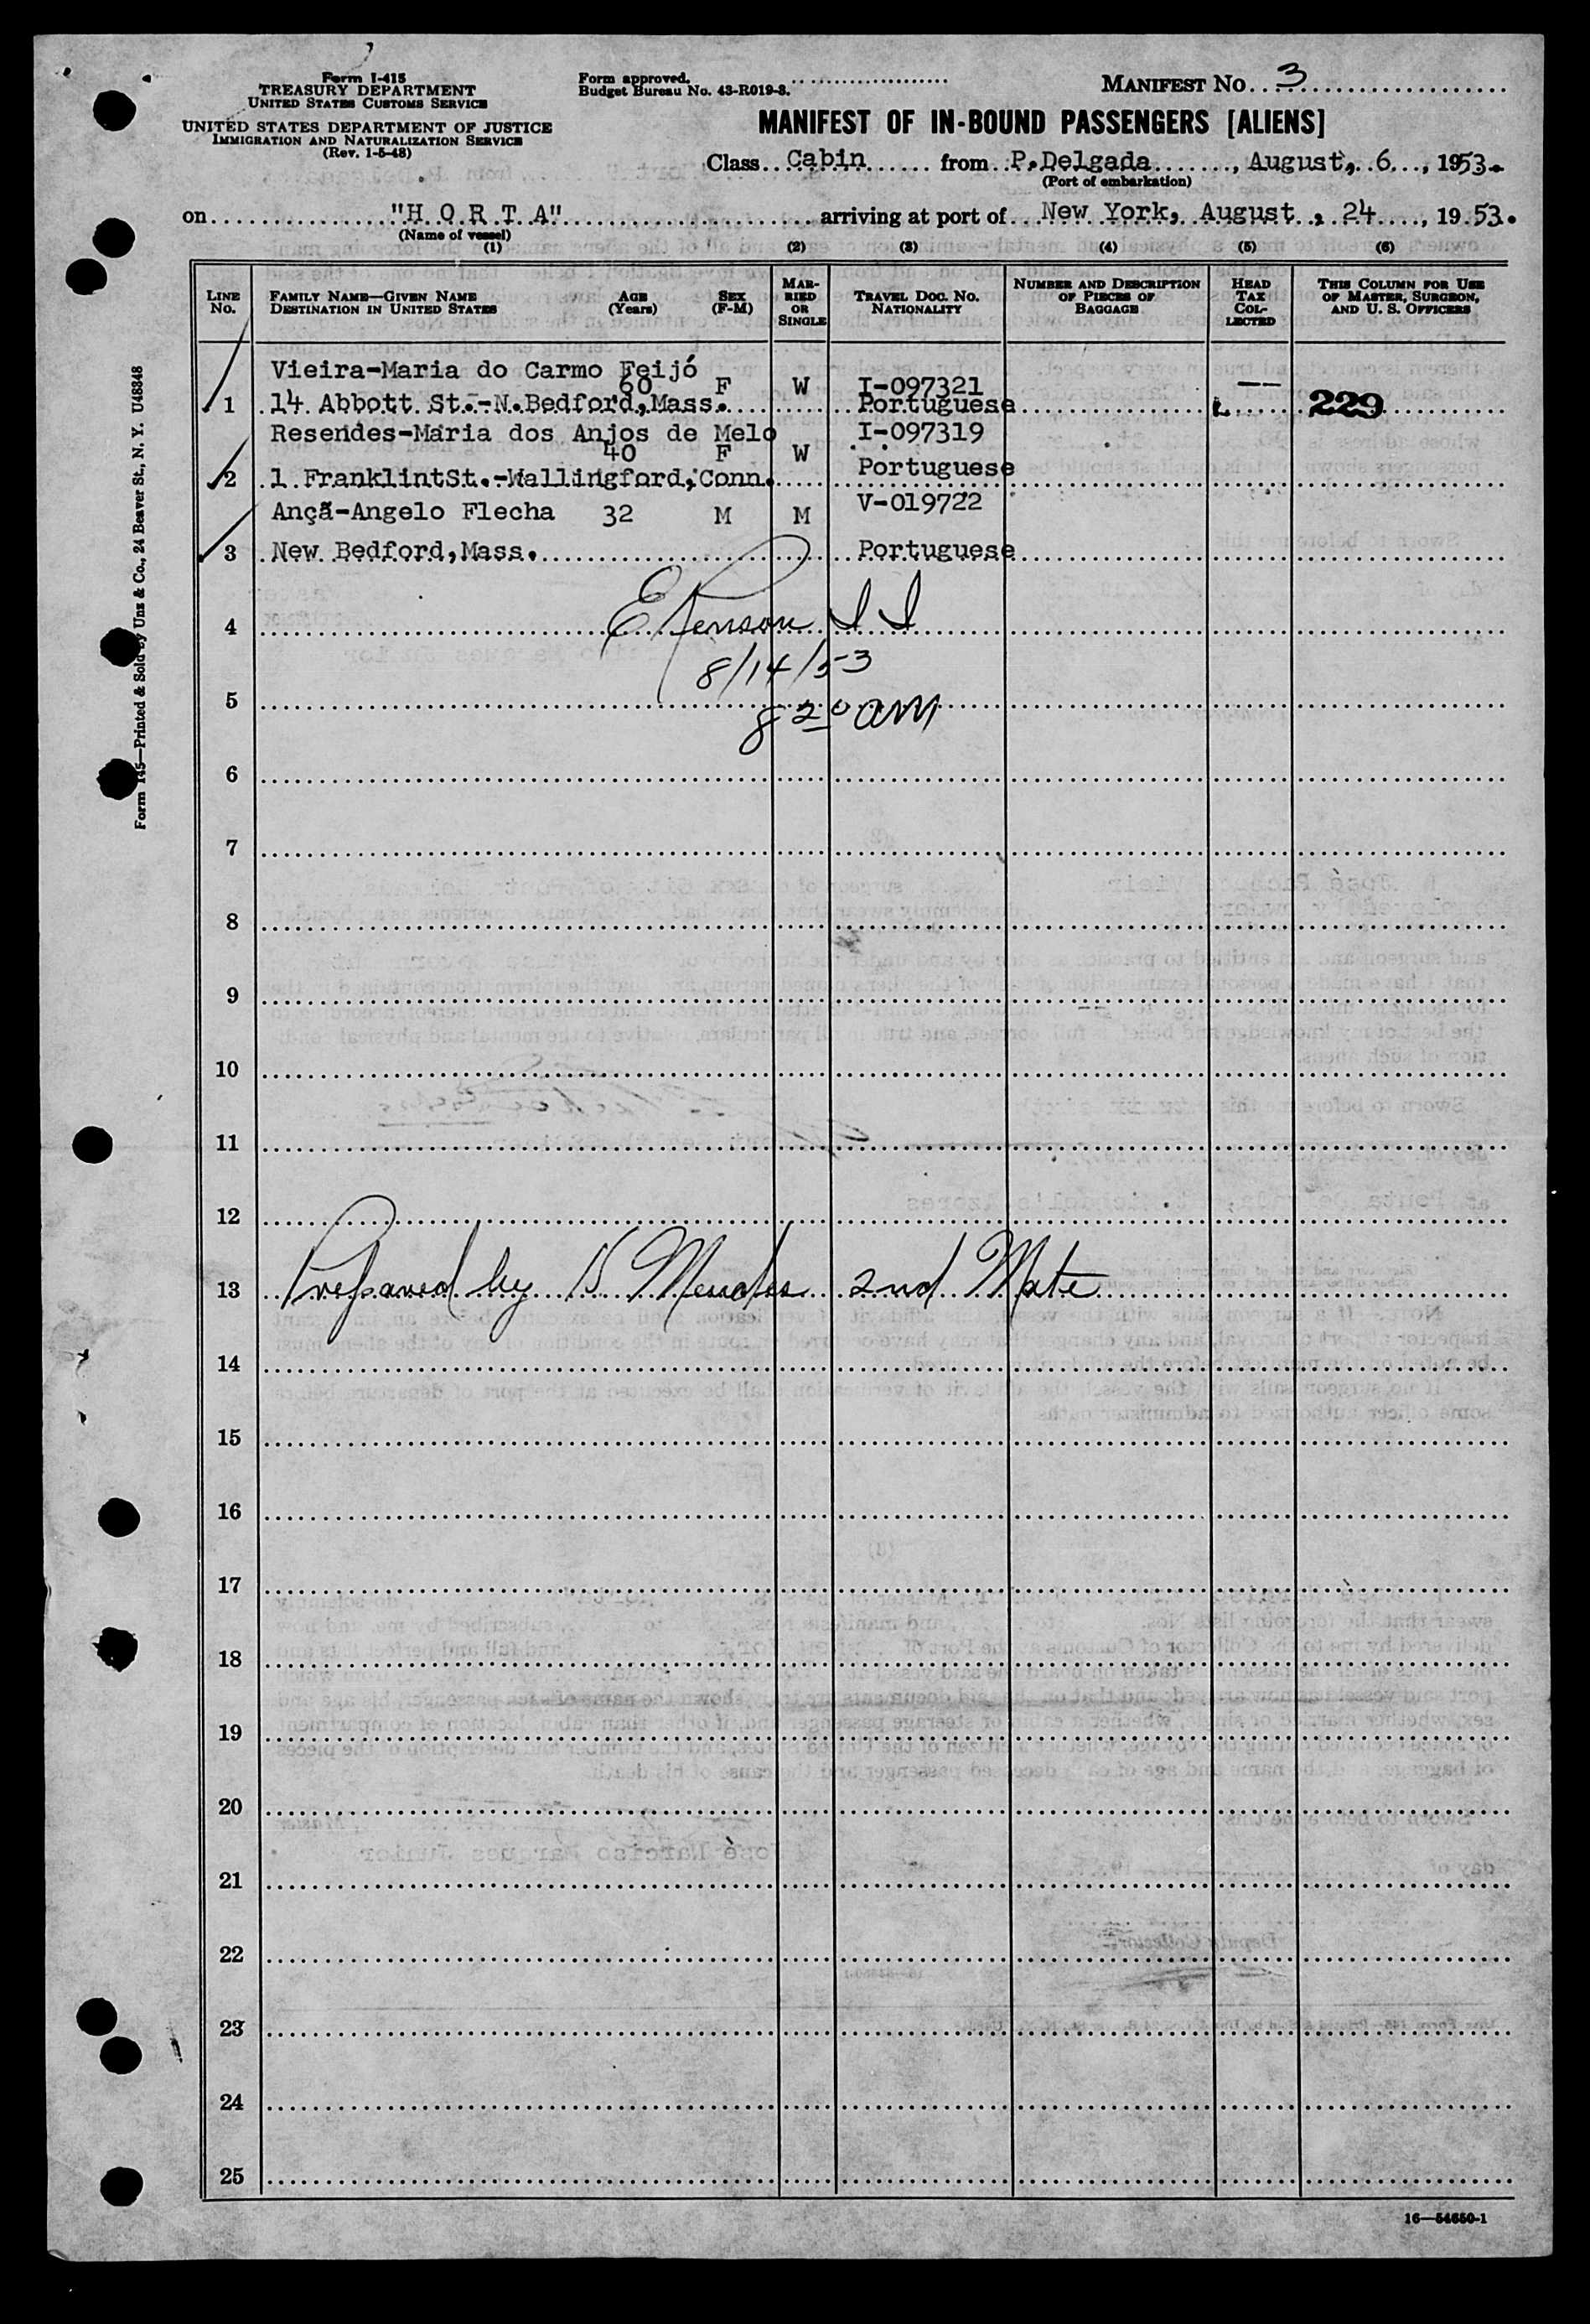 Form I-415
TREASURY DEPARTMENT
UNITED STATES CUSTOMS SERVICE
UNITED STATES DEPARTMENT OF JUSTICE
IMMIGRATION AND NATURALIZATION SERVICE
(Rev. 1-5-48)
Form approved.
Budget Bureau No. 43-R019-3.
MANIFEST NO. 3
MANIFEST OF IN-BOUND PASSENGERS [ALIENS]
Class Cabin from P.Delgada, August, 6, 1953.
(Port of embarkation)
on "H O R T A" arriving at port of New York, August, 24, 1953.
(Name of vessel)
(1) (2) (3) (4) (5) (6)
LINE NO. FAMILY NAME—GIVEN NAME DESTINATION IN UNITED STATES AGE (Years) SEX (F-M) MARRIED OR SINGLE TRAVEL DOC. NO. NATIONALITY NUMBER AND DESCRIPTION OF PIECES OF BAGGAGE HEAD TAX COLLECTED THIS COLUMN FOR USE OF MASTER, SURGEON, AND U. S. OFFICERS
Vieira-Maria do Carmo Feijó 60 F W I-097321 --
1 14 Abbott St.-N.Bedford,Mass. Portuguese 229
Resendes-Maria dos Anjos de Melo 40 F W I-097319
2 1 FranklintSt.-Wallingford,Conn. Portuguese
Ançã-Angelo Flecha 32 M M V-019722
3 New Bedford,Mass. Portuguese
4 I I
8/14/53
5
8 20 am
6
7
8
9
10
11
12
13 Prepared by Mendes 2nd Mate
14
15
16
17
18
19
20
21
22
23
24
25
16—54650-1
Form 145—Printed & Sold by Unz & Co., 24 Beaver St., N. Y. U48348